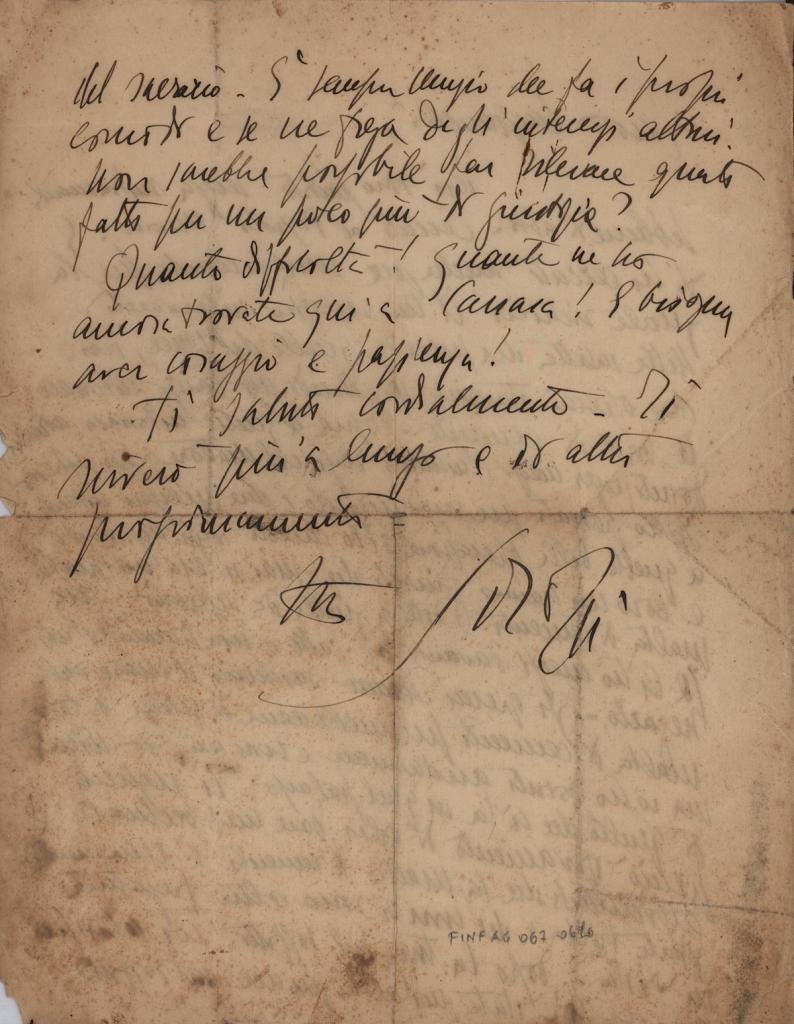 del sacrario - È sempre lungio che fa i propri
comodi e se ne frega degli interessi altrui.
Non sarebbe possibile far rilevare questi
fatti per un poco più di giustizia?
Quante difficoltà! Quante ne ho
ancora trovate qui a Carrara! E bisogna
aver coraggio e pazienza!
Ti saluto cordialmente - Ti
scriverò più a lungo e di altri
prossimamente =
tuo
FINFAG 067 0690